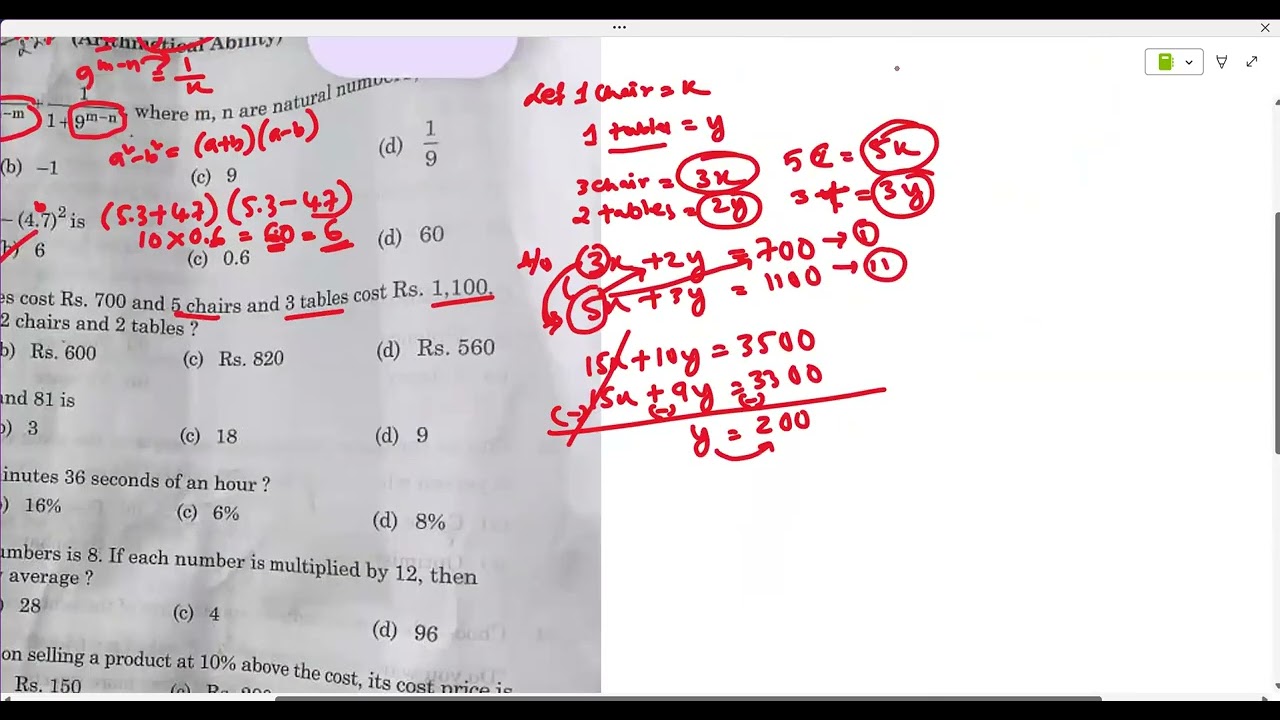 (Arithmetical Ability)
9^{m-n} = 1/x
-m + 1/(1+9^{m-n}), where m, n are natural numbers,
a² - b² = (a+b)(a-b)
(b) -1
(c) 9
(d) 1/9
- (4.7)² is (5.3+4.7)(5.3-4.7)
10 × 0.6 = 60 = 6
b) 6
(c) 0.6
(d) 60
es cost Rs. 700 and 5 chairs and 3 tables cost Rs. 1,100,
2 chairs and 2 tables ?
b) Rs. 600
(c) Rs. 820
(d) Rs. 560
and 81 is
b) 3
(c) 18
(d) 9
inutes 36 seconds of an hour ?
) 16%
(c) 6%
(d) 8%
umbers is 8. If each number is multiplied by 12, then
y average ?
) 28
(c) 4
(d) 96
on selling a product at 10% above the cost, its cost price is
Rs. 150
Let 1 chair = x
1 tables = y
3 chair = 3x
2 tables = 2y
5 C = 5x
3 t = 3y
A/Q 3x + 2y = 700 → (i)
5x + 3y = 1100 → (ii)
15x + 10y = 3500
15x + 9y = 3300
(-) (-) (-)
y = 200